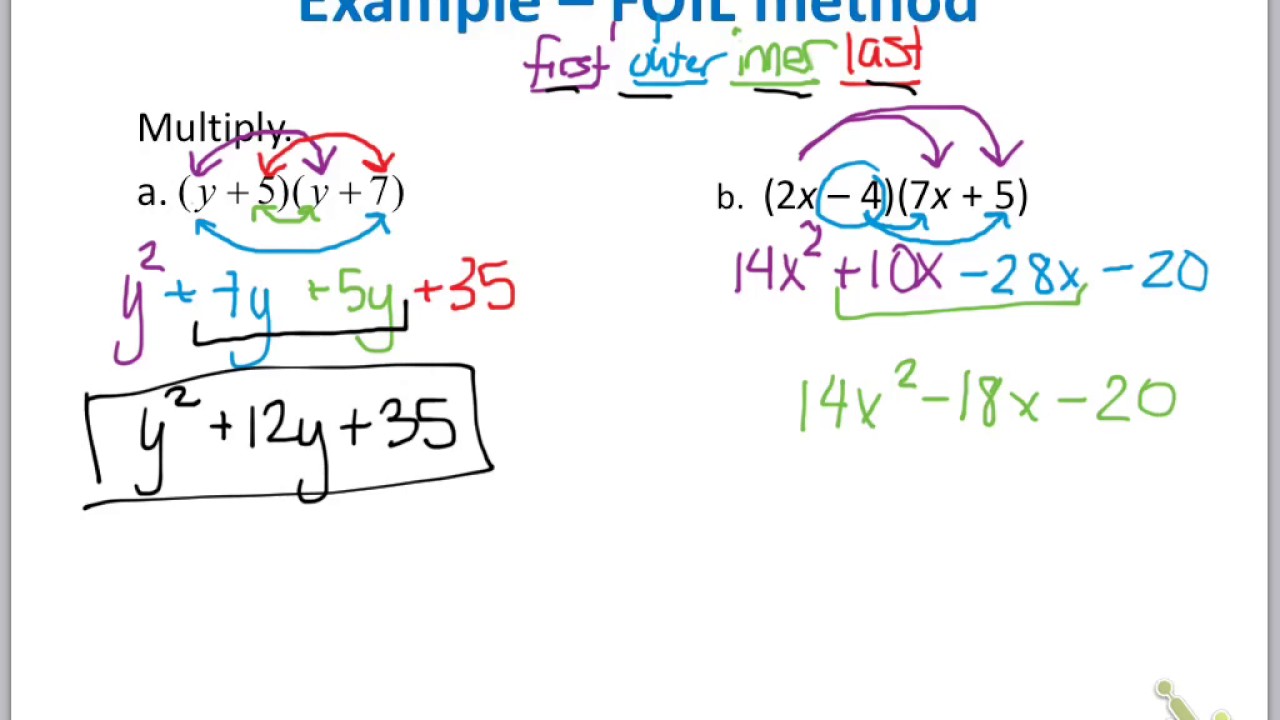 Example – FOIL method
first outer inner last
Multiply.
a. (y + 5)(y + 7)
y² + 7y + 5y + 35
y² + 12y + 35
b. (2x – 4)(7x + 5)
14x² + 10x – 28x – 20
14x² – 18x – 20